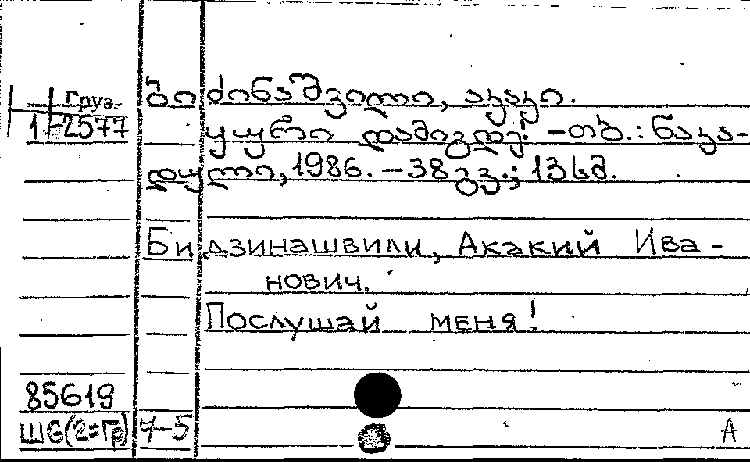 Груз. ბიძინაშვილი, აკაკი.
1-2577 ყური დამიგდე! – თბ.: ნაკა-
დული, 1986. – 38 გვ.; 13 სმ.
Бидзинашвили, Акакий Ива-
нович.
Послушай меня!
85619
Ш6(2=Гр) 7-5 А